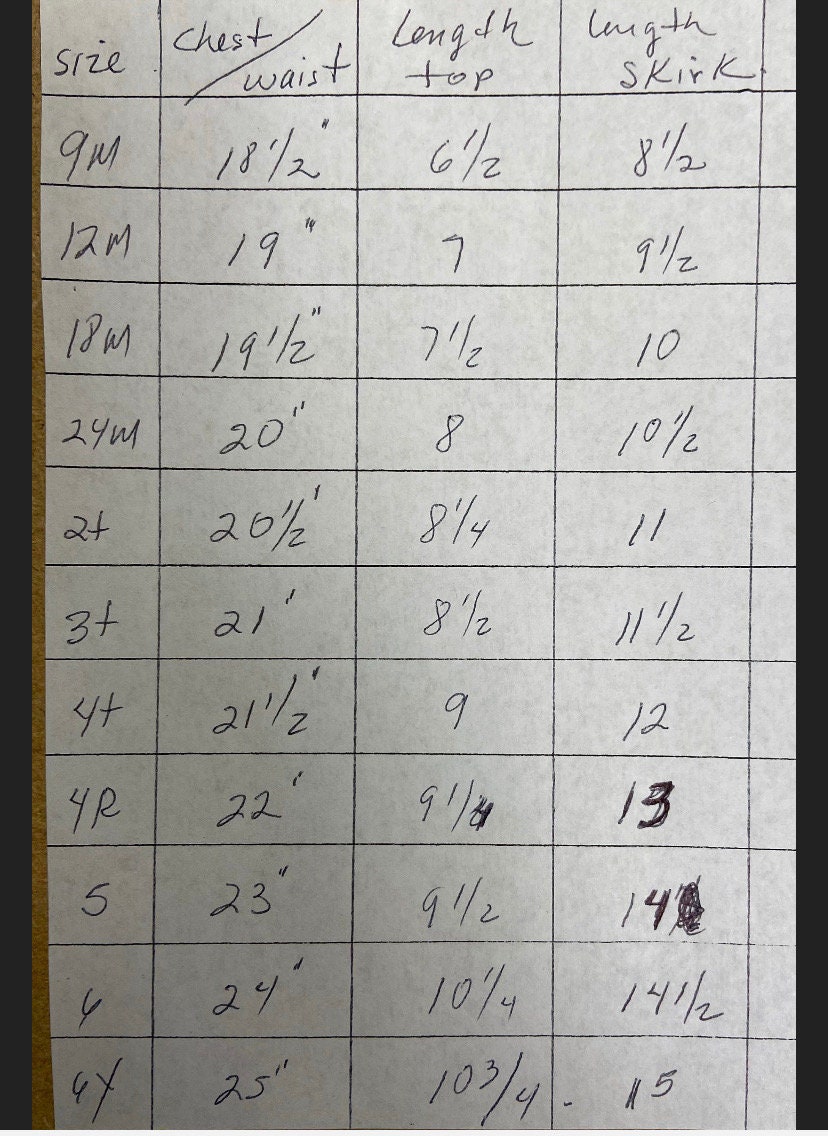 size Chest/waist Length top Length skirk
9M 18 1/2" 6 1/2 8 1/2
12M 19" 7 9 1/2
18M 19 1/2" 7 1/2 10
24M 20" 8 10 1/2
2t 20 1/2" 8 1/4 11
3t 21" 8 1/2 11 1/2
4t 21 1/2" 9 12
4R 22" 9 1/4 13
5 23" 9 1/2 14
6 24" 10 1/4 14 1/2
6X 25" 10 3/4 15